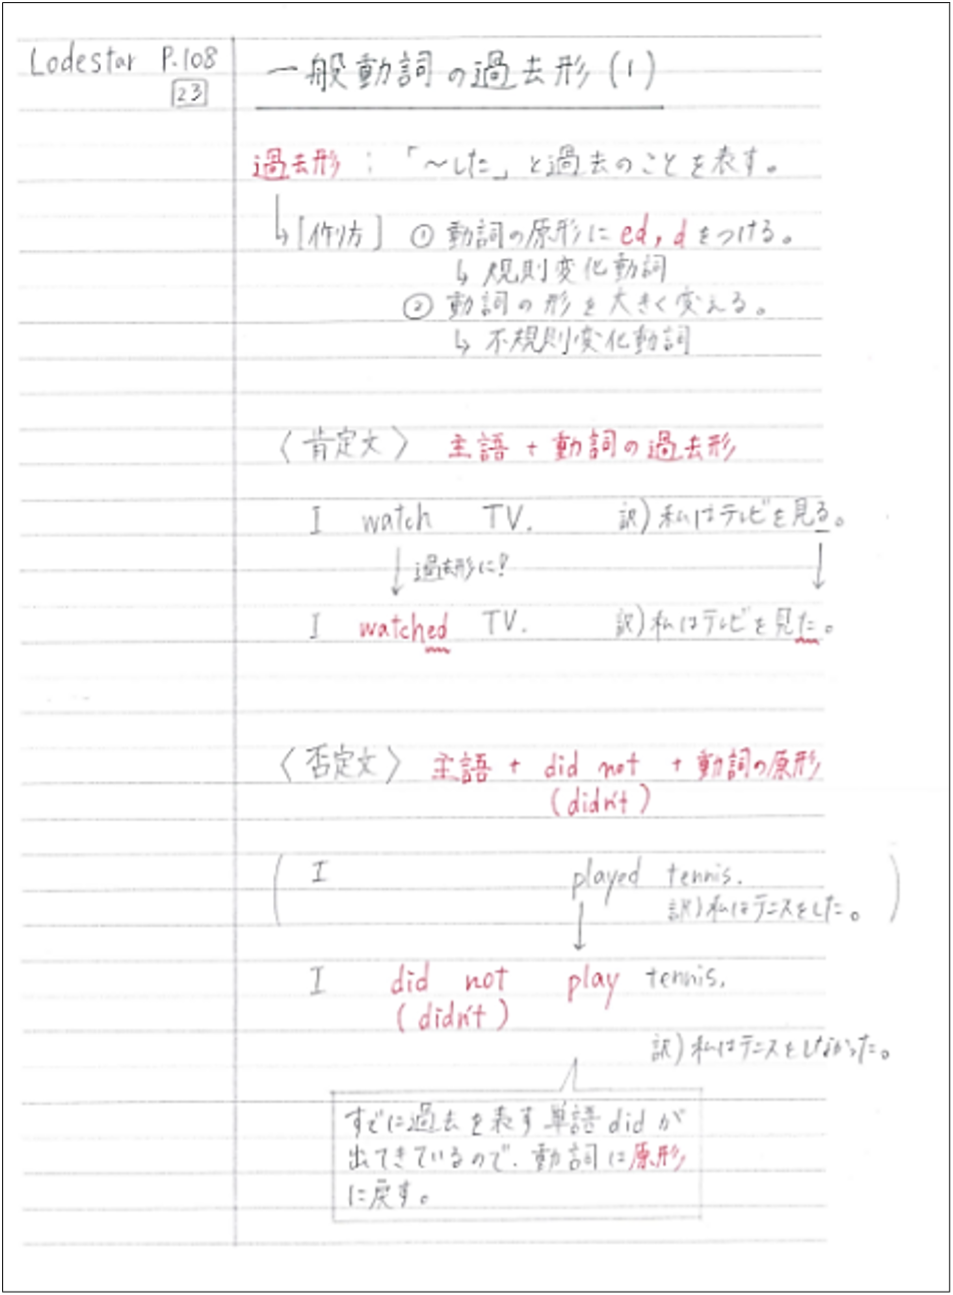 Lodestar P.108
23
一般動詞の過去形(1)
過去形:「~した」と過去のことを表す。
↳[作り方] ① 動詞の原形に ed, d をつける。
↳ 規則変化動詞
② 動詞の形を大きく変える。
↳ 不規則変化動詞
〈肯定文〉 主語 + 動詞の過去形
I watch TV. 訳)私はテレビを見る。
↓ 過去形に! ↓
I watched TV. 訳)私はテレビを見た。
〈否定文〉 主語 + did not + 動詞の原形
(didn't)
( I played tennis.
訳)私はテニスをした。)
↓
I did not play tennis.
(didn't)
訳)私はテニスをしなかった。
すでに過去を表す単語didが
出てきているので、動詞は原形
に戻す。